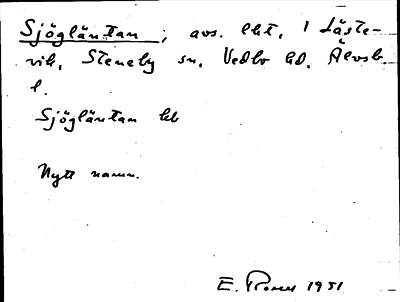 Sjögläntan; avs. lht. 1 Låste-
vik, Steneby sn, Vedbo hd. Älvsb
l.
Sjögläntan lht
Nytt namn.
E. Rosell 1951